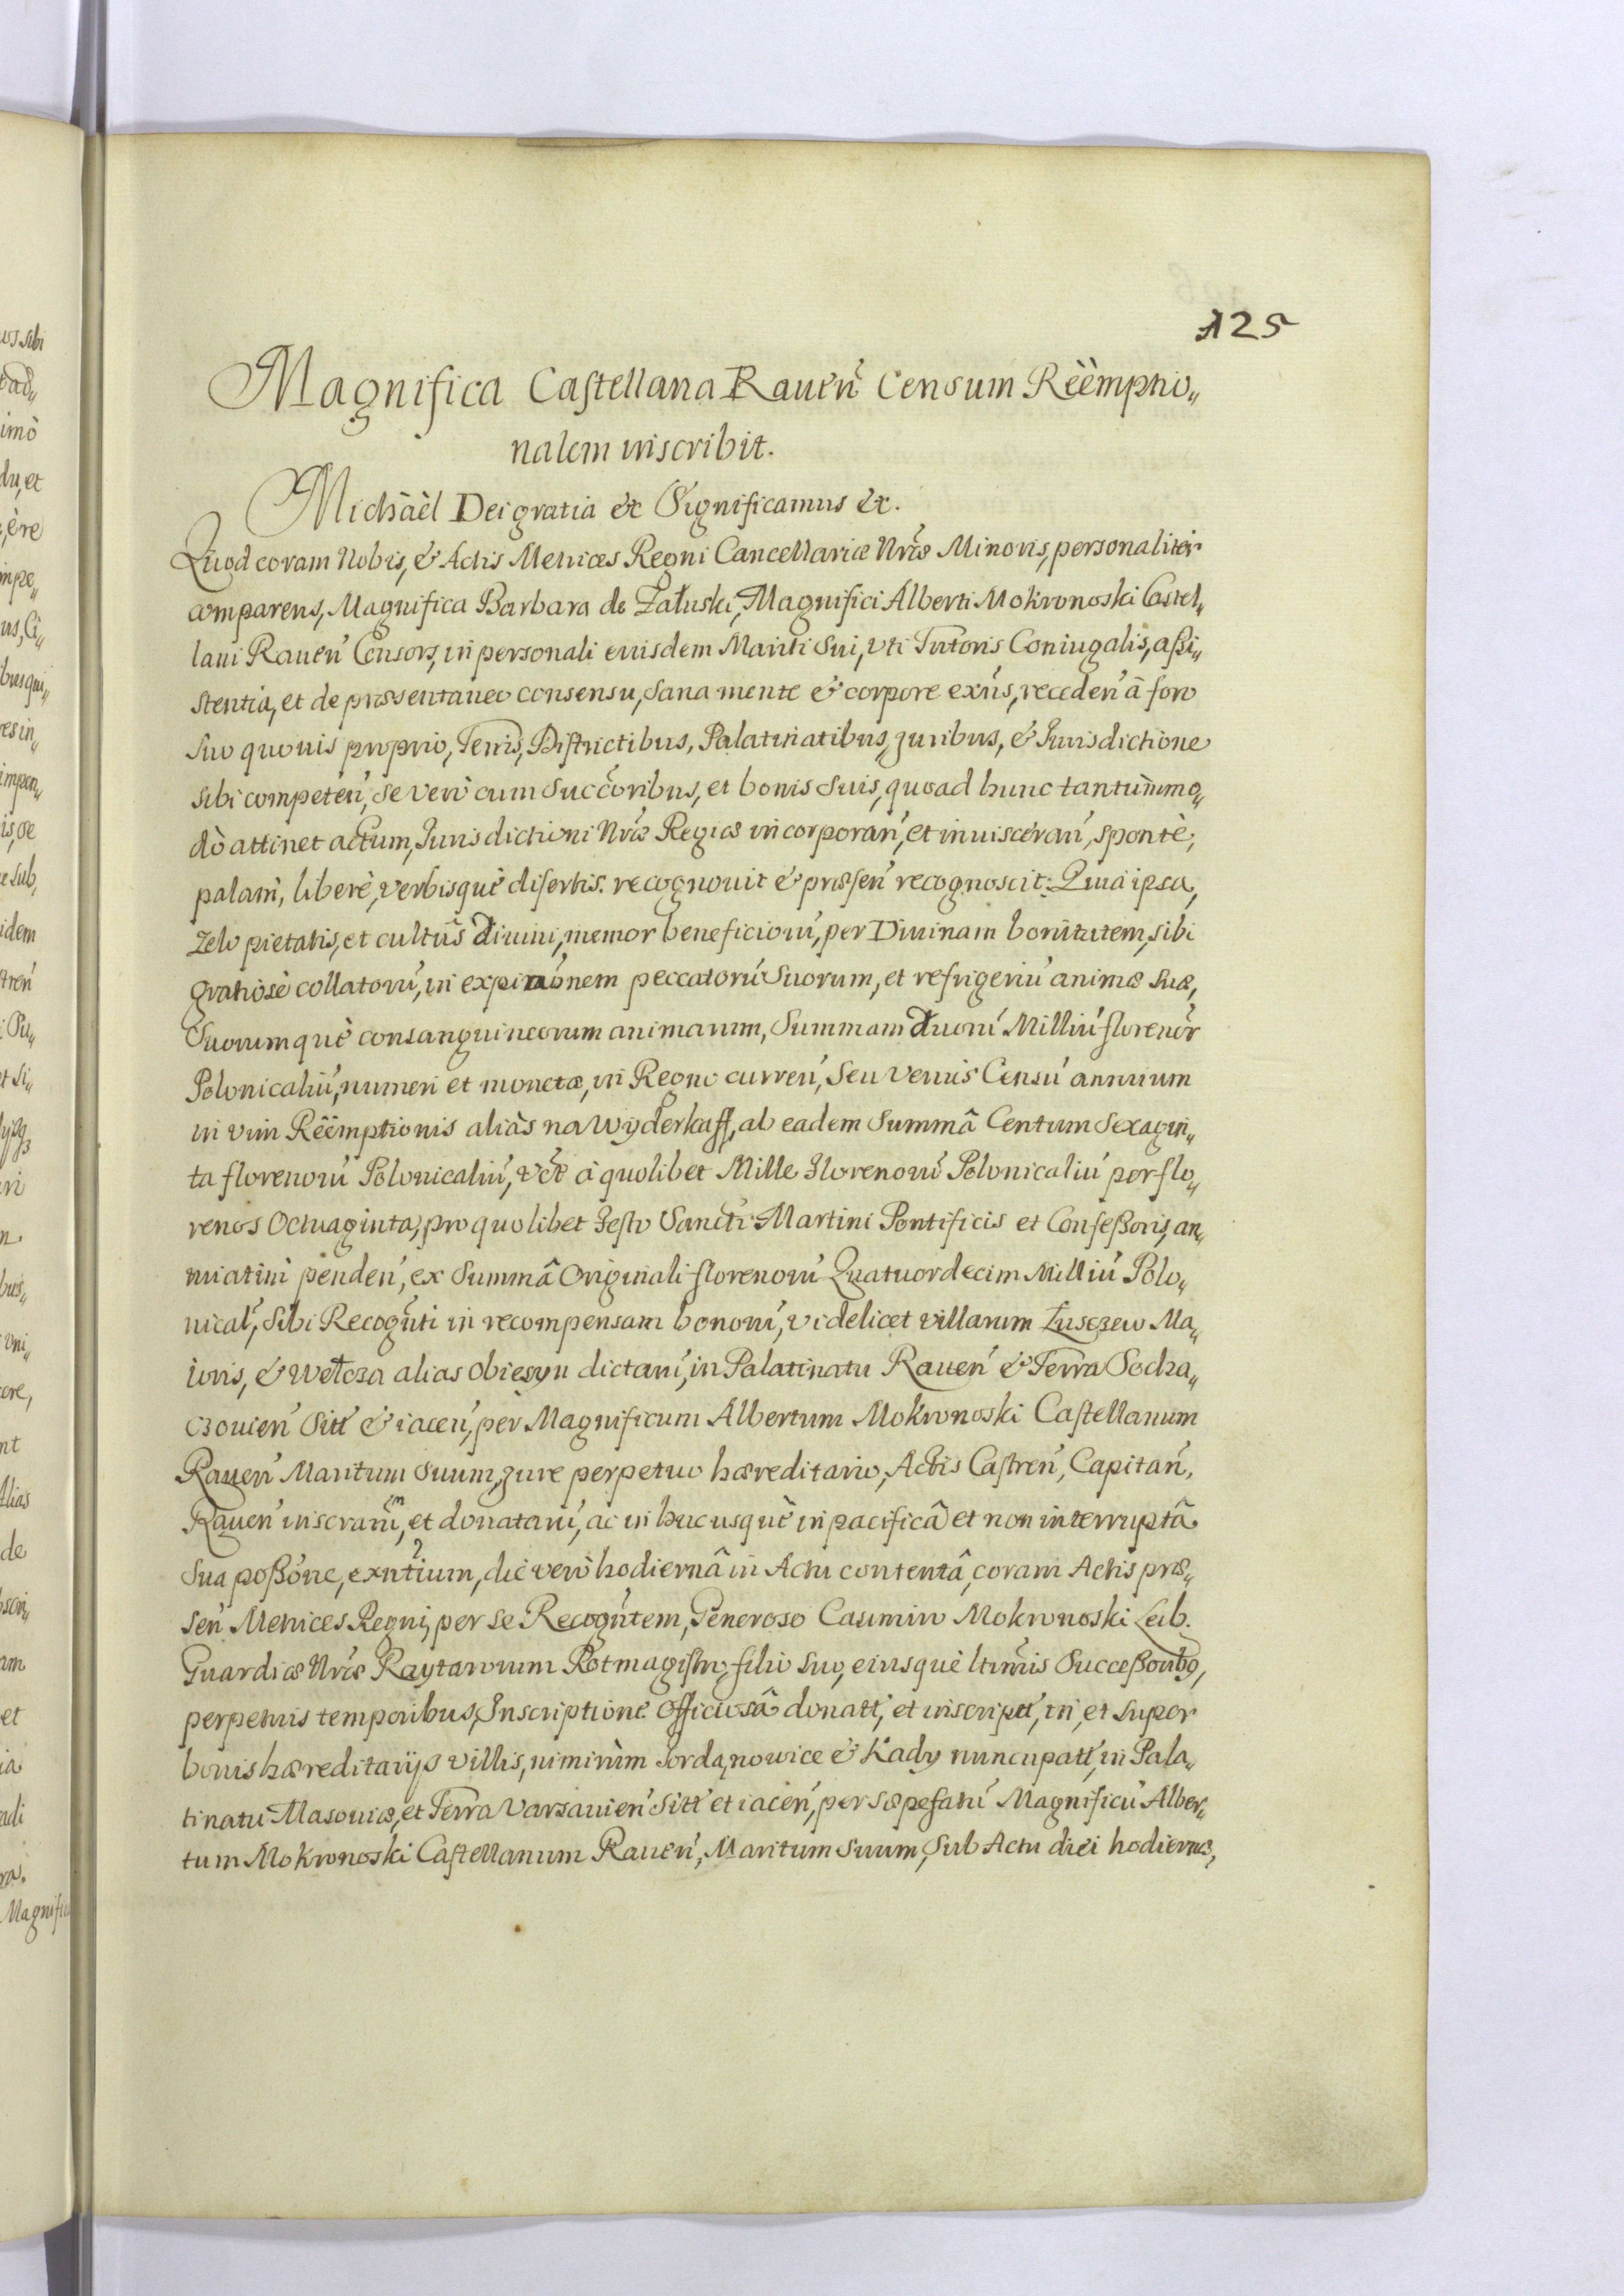 125
Magnifica Castellana Raueń Censum Rëèmptio„
nalem inscribit.
Michàèl Dei gratia &c Significamus &c.
Quod coram Nobis, & Actis Metrices Regni Cancellariæ Nræ Minoris, personaliter
comparens, Magnifica Barbara de Załuski, Magnifici Alberti Mokronoski Castel„
lani Raueń Consors, in personali eiusdem Mariti Sui, vti Tutoris Coniugalis, aßi„
stentia, et de præsentaneo consensu, sana mente & corpore exńs, receden̄ à foro
suo quouis proprio, Terris, Districtibus, Palatinatibus, Juribus, & Jurisdictione
sibi competeń, se verò cum Succoribus, et bonis suis, quoad hunc tantum̀mo„
dò attinet actum, Jurisdictioni Nræ Regiæ incorporań, et inuiscerań, spontè,
palam̀, liberè, verbisquè disertis recognouit & præseń recognoscit: Quia ipsa,
zelo pietatis, et cultus̃ Diuini, memor beneficioru̇, per Diuinam bonitatem, sibi
gratiosè collatorú, in expiaõnem peccatorú Suorum, et refrigeriú animæ suæ,
Suorumquè consanguineorum animarum, Summam Duorú Milliú florenor̃
Polonicaliú, numeri et monetæ, in Regno curreń, Seu verius Censú annuum
in vim Rëëmptionis aliàs na Wyderkaff, ab eadem Summâ Centum Sexagin„
ta florenorú Polonicaliú, vct̃ à quolibet Mille Florenorú Polonicaliú per flo„
renos Octuaginta, pro quolibet Festo Sancti Martini Pontificis et Confeßoris, an„
nuatim̀ pendeń, ex Summâ Originali florenorú Quatuordecim Milliú Polo„
nicał, Sibi Recogñti in recompensam bonorú, videlicet villarum Łusczew Ma„
ioris, & Wełcza alias Obiesyn dictarú, in Palatinatu Raueń & Terra Socha„
czouień Sitt & iaceń, per Magnificum Albertum Mokronoski Castellanum
Raueń Maritum Suum, Jure perpetuo hæreditario, Actis Castreń, Capitań,
Raueń inscrarum̃, et donatarú, ac in hucusquè in pacificâ et non interruptâ
sua poßõne, exntium, die verò hodiernâ in Actu contentâ, coram Actis præ„
señ Metrices Regni, per se Recogñtem, Generoso Casimiro Mokronoski Leib.
Guardiæ Nræ Raytarorum Rotmagistro, filio suo, eiusquè ltimis̃ Succeßoribꝰ,
perpetuis temporibus, Inscriptione Officiosâ donatt, et inscriptt, in, et super
bonis hæreditarijs villis, nimirùm Jordanowice & Kady nuncupatt, in Pala„
tinatu Masouiæ, et Terra Varsauień Sitt et iaceń, per sæpefatú Magnificú Alber„
tum Mokronoski Castellanum Raueń, Maritum Suum, Sub Actu diei hodiernæ,